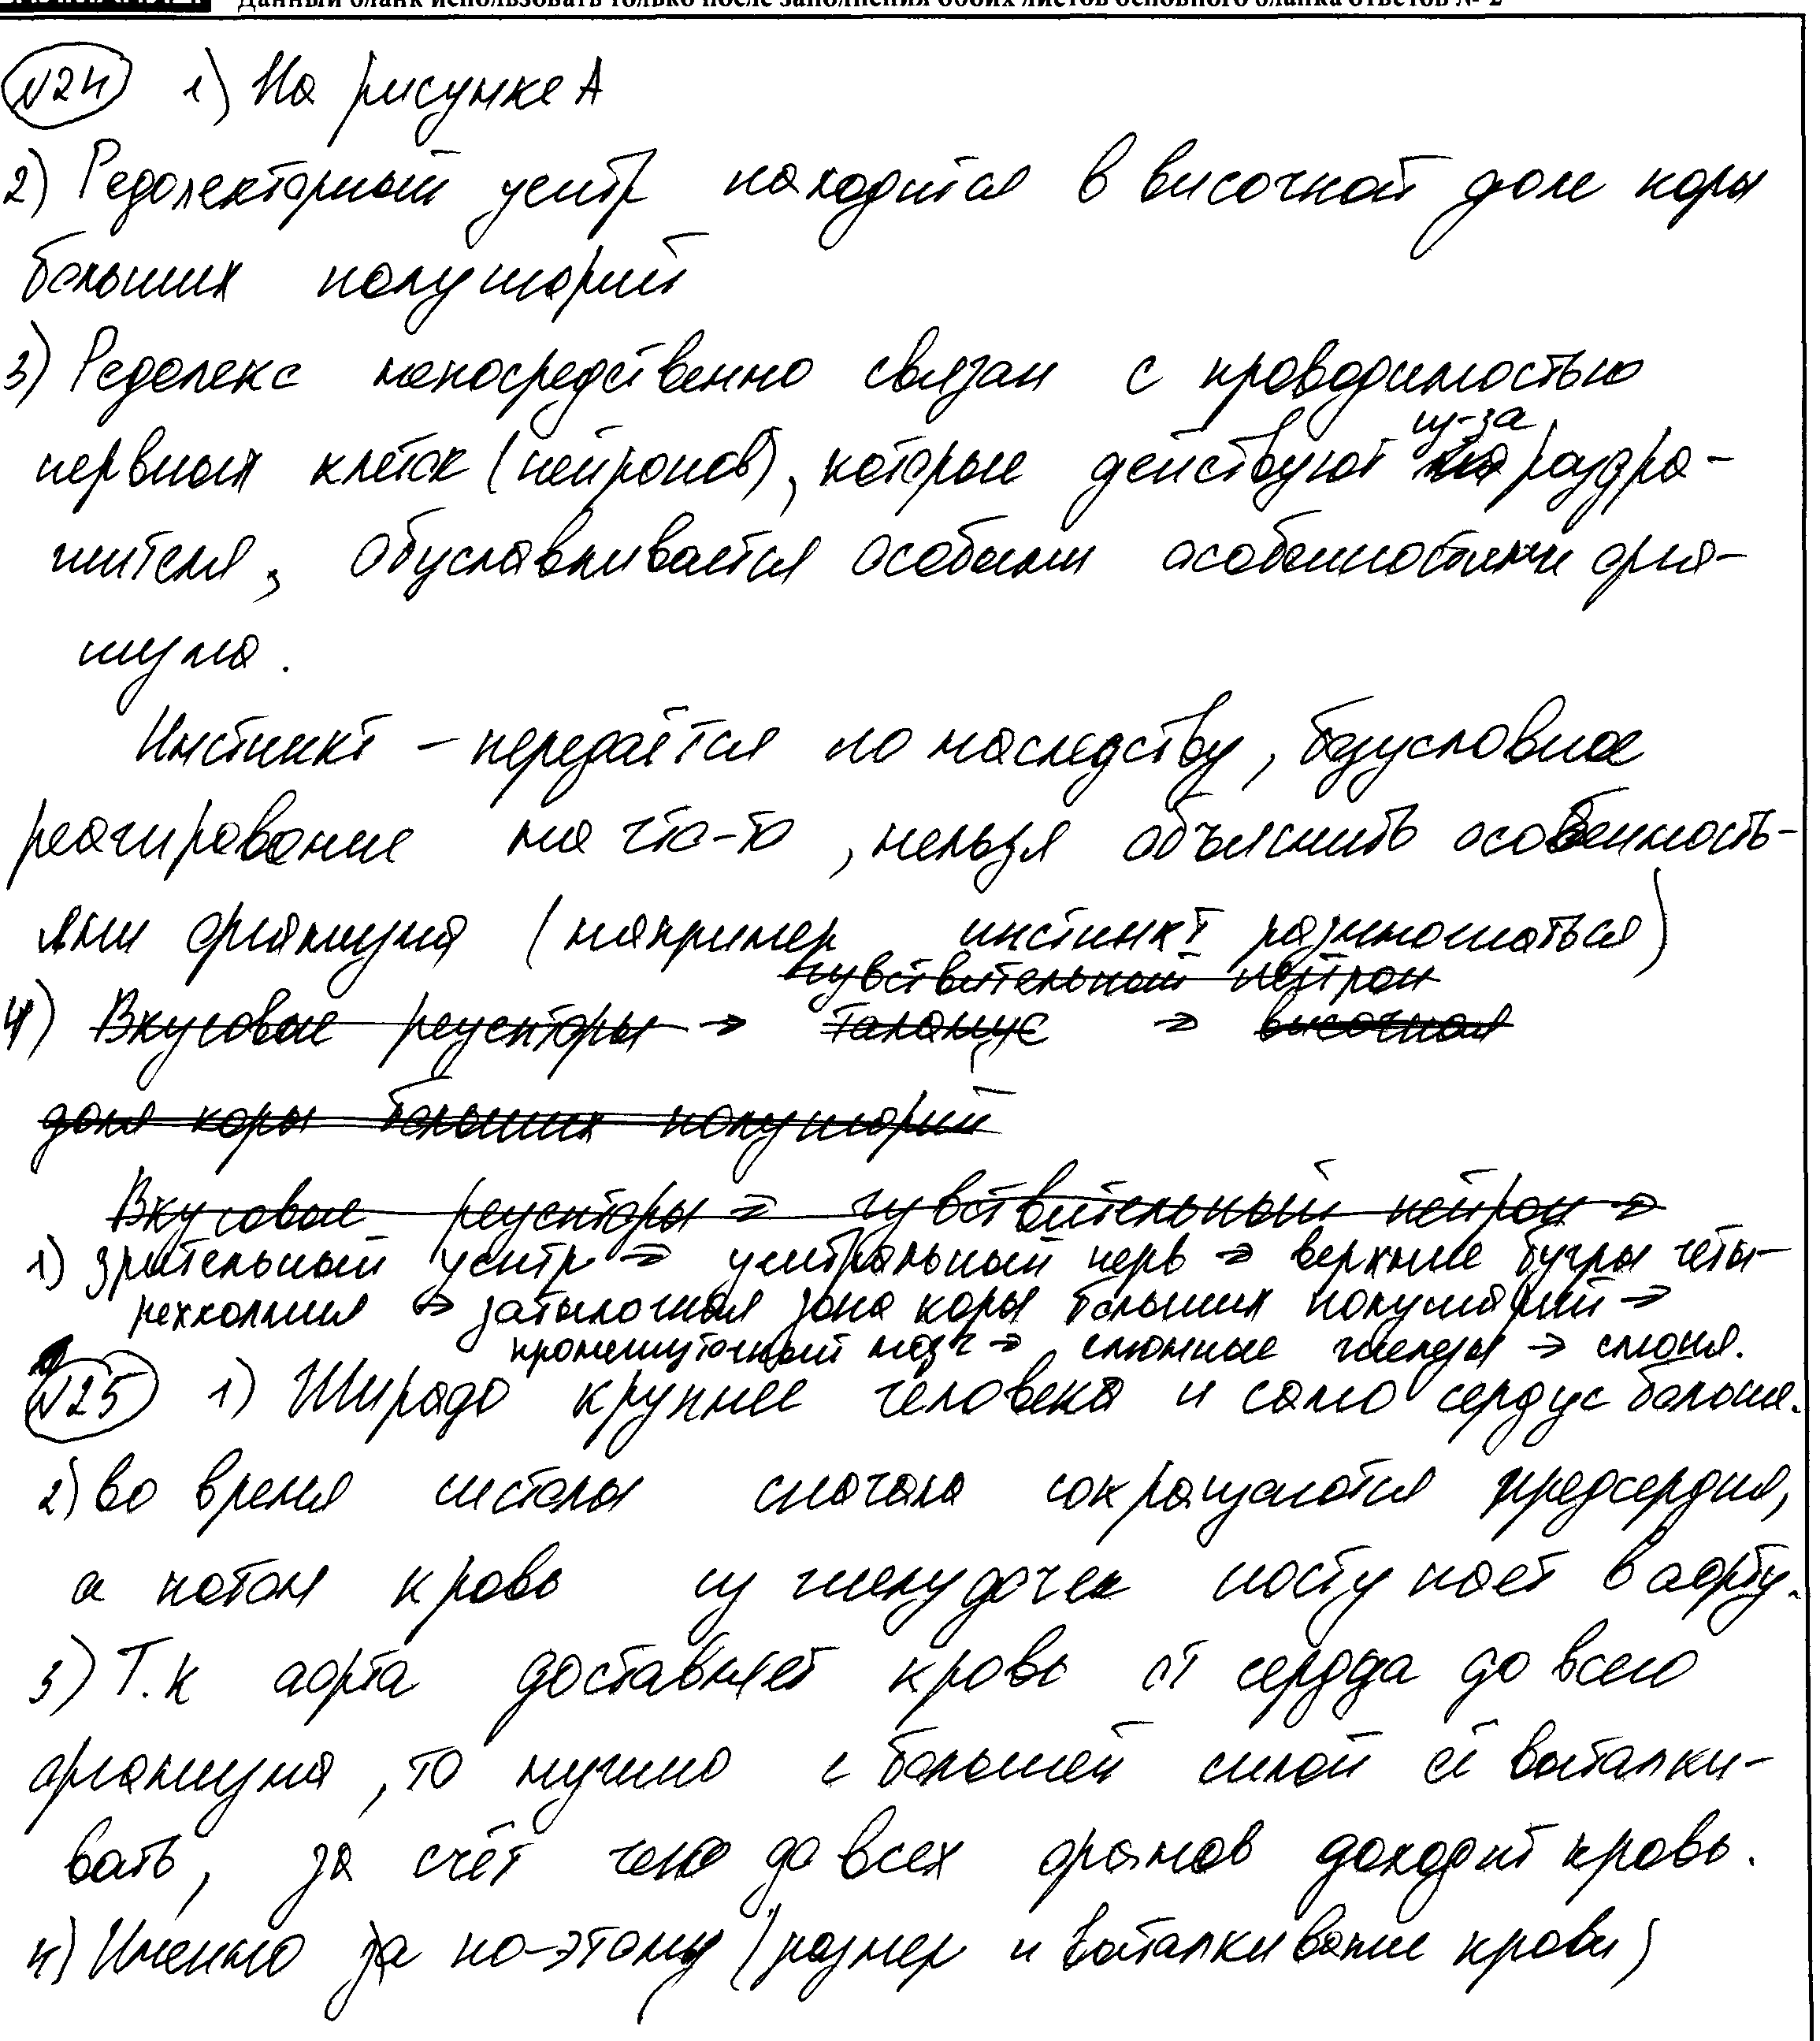 Данный бланк использовать только после заполнения обоих листов основного бланка ответов № 2
№24 1) На рисунке А
2) Рефлекторный центр находится в височной доле коры
больших полушарий
3) Рефлекс непосредственно связан с проводимостью
нервных клеток (нейронов), которые действуют из-за раздра-
жителя, обуславливается особыми особенностями орга-
низма.
Инстинкт – передаётся по наследству, безусловное
реагирование на что-то, нельзя объяснить особенность-
ями организма (например инстинкт размножаться)
чувствительный нейрон
4) Вкусовые рецепторы → таламус → височная
доля коры больших полушарий
Вкусовые рецепторы → чувствительный нейрон →
1) зрительный центр → центральный нерв → верхние бугры четы-
рехколмия → затылочная зона коры больших полушарий →
промежуточный мозг → слюнные железы → слюна.
№25 1) Жирафа крупнее человека и само сердце больше.
2) во время систолы сначала сокращаются предсердия,
а потом кровь из желудочек поступает в аорту.
3) Т.к аорта доставляет кровь от сердца до всего
организма, то нужно с большей силой её выталки-
вать, за счёт чего до всех органов доходит кровь.
4) Именно за по-этому (размер и выталкивание крови)